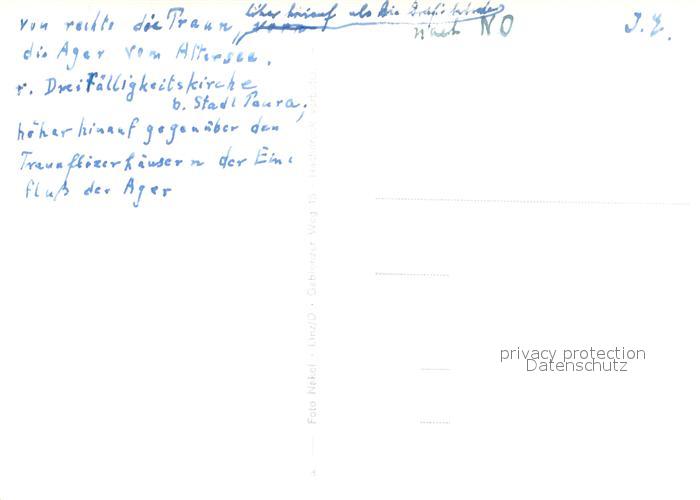 von rechts die Traun, höher hinauf als die
nach NO
die Ager vom Attersee,
r. Dreifälligkeitskirche
b. Stadl Paura;
höher hinauf gegenüber den
Traunflözerhäusern der Ein=
fluß der Ager
Foto Nekel · Linz/D · Gablonzer Weg 15
privacy protection
Datenschutz